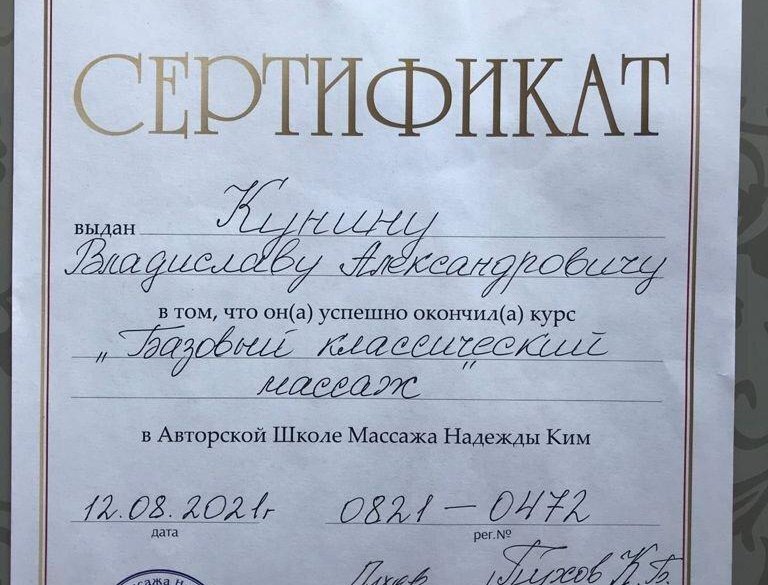 СЕРТИФИКАТ
выдан Кунину
Владиславу Александровичу
в том, что он(а) успешно окончил(а) курс
„Базовый классический
массаж"
в Авторской Школе Массажа Надежды Ким
12.08.2021г 0821 – 0472
дата рег.№
Пихов К.Б.